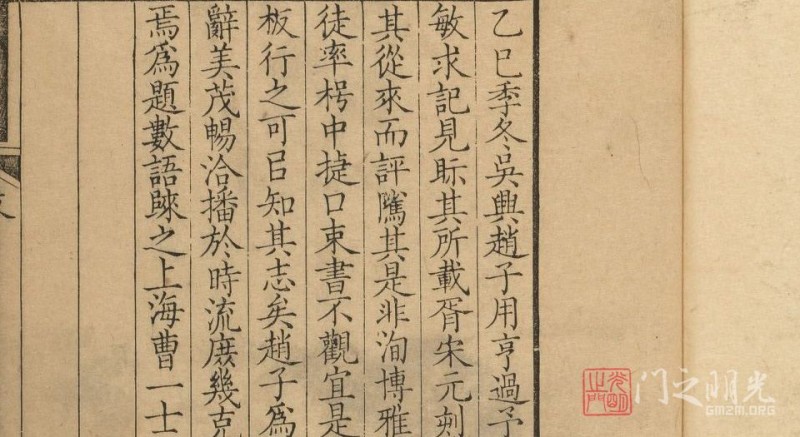 乙巳季冬吳興趙子用亨過予
敏求記見眎其所載胥宋元刻
其從來而評隲其是非洵博雅
徒率枵中捷口束書不觀宜是
板行之可㠯知其志矣趙子爲
辭美茂暢洽播於時流庻幾克
焉爲題數語之上海曹一士
光明之門
門之明光
GMZM.ORG